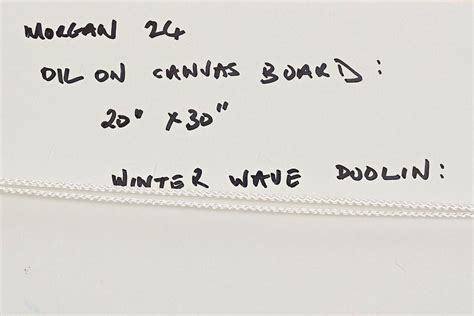 MORGAN 24
OIL ON CANVAS BOARD:
20" x 30"
WINTER WAVE DOOLIN: